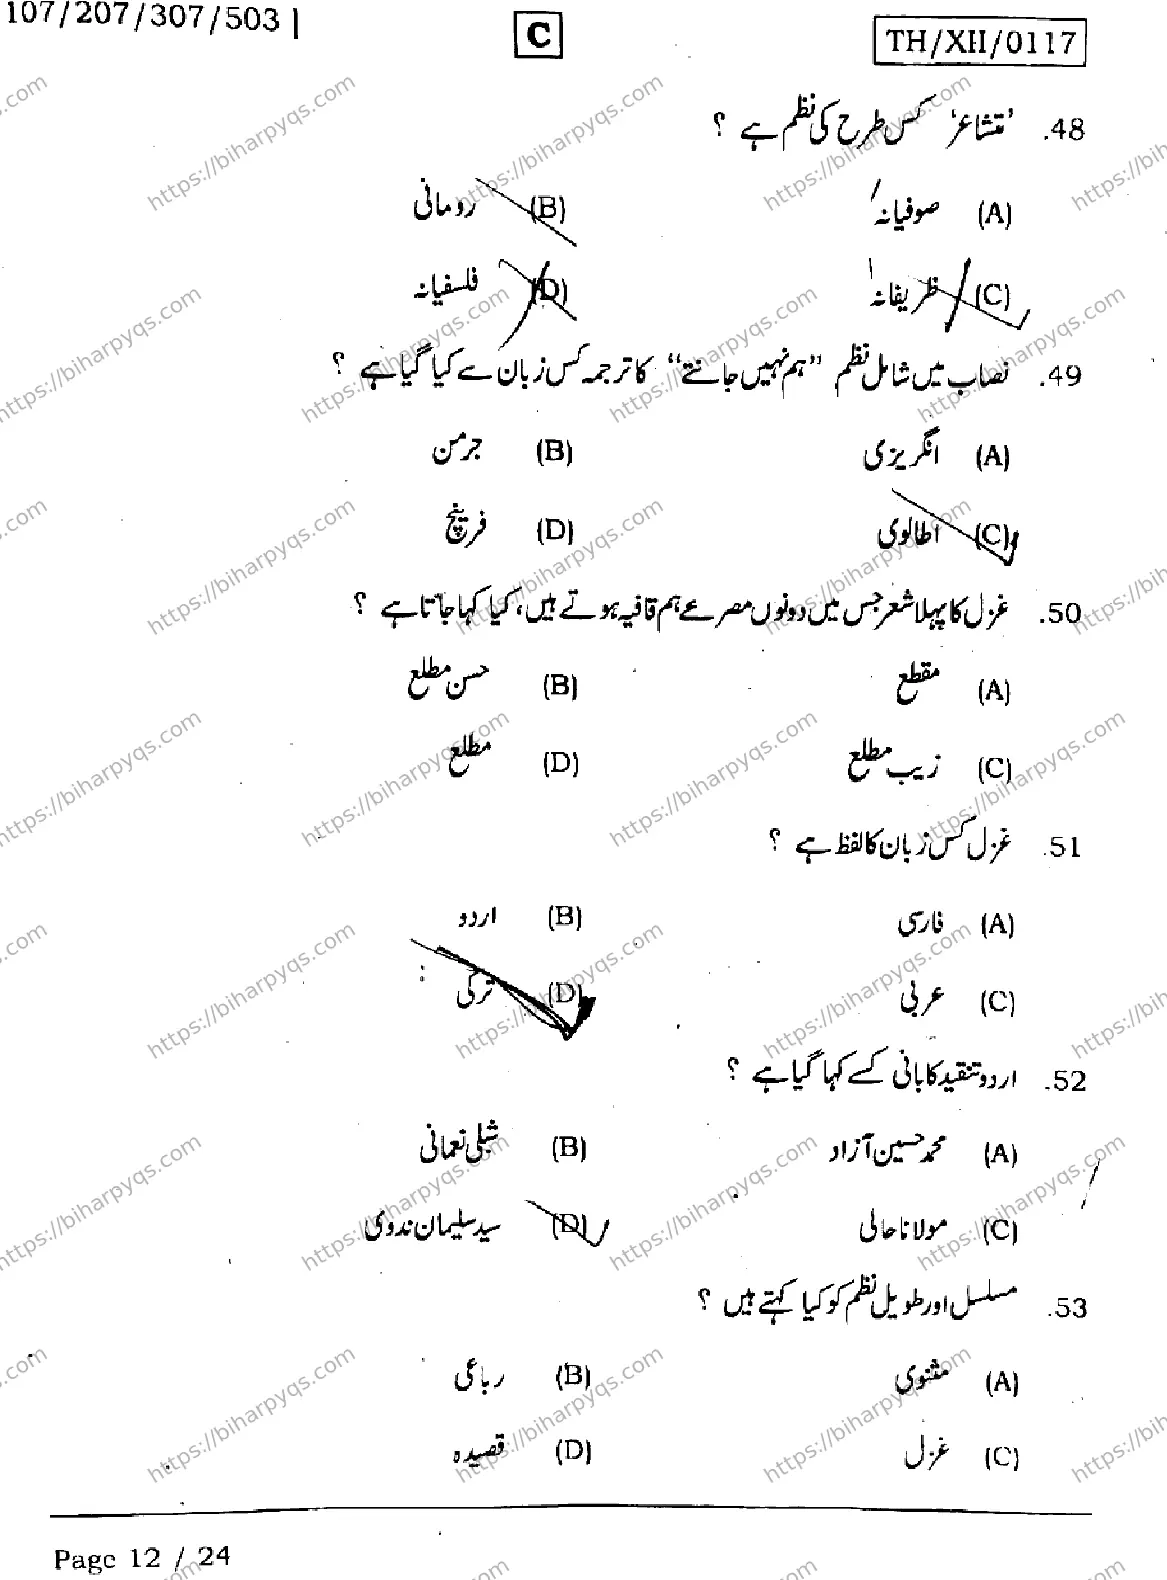 107/207/307/503 |
C
TH/XII/0117
48. 'متشاعر' کس طرح کی نظم ہے ؟
(A) صوفیانہ (B) رومانی
(C) ظریفانہ (D) فلسفیانہ
49. نصاب میں شامل نظم ”ہم نہیں جانتے“ کا ترجمہ کس زبان سے کیا گیا ہے ؟
(A) انگریزی (B) جرمن
(C) اطالوی (D) فرینچ
50. غزل کا پہلا شعر جس میں دونوں مصرعے ہم قافیہ ہوتے ہیں، کیا کہا جاتا ہے ؟
(A) مقطع (B) حسن مطلع
(C) زیب مطلع (D) مطلع
51. غزل کس زبان کا لفظ ہے ؟
(A) فارسی (B) اردو
(C) عربی (D) ترکی
52. اردو تنقید کا بانی کسے کہا گیا ہے ؟
(A) محمد حسین آزاد (B) شبلی نعمانی
(C) مولانا حالی (D) سید سلیمان ندوی
53. مسلسل اور طویل نظم کو کیا کہتے ہیں ؟
(A) مثنوی (B) رباعی
(C) غزل (D) قصیدہ
Page 12 / 24
https://biharpyqs.com